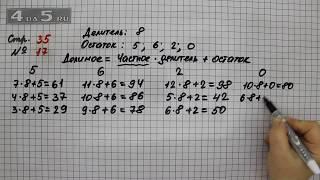 4DA5.RU
Стр. 35
№ 17
Делитель: 8
Остаток: 5, 6, 2, 0
Делимое = Частное · делитель + остаток
5 6 2 0
7·8+5=61 11·8+6=94 12·8+2=98 10·8+0=80
4·8+5=37 10·8+6=86 5·8+2=42 6·8+
3·8+5=29 9·8+6=78 6·8+2=50